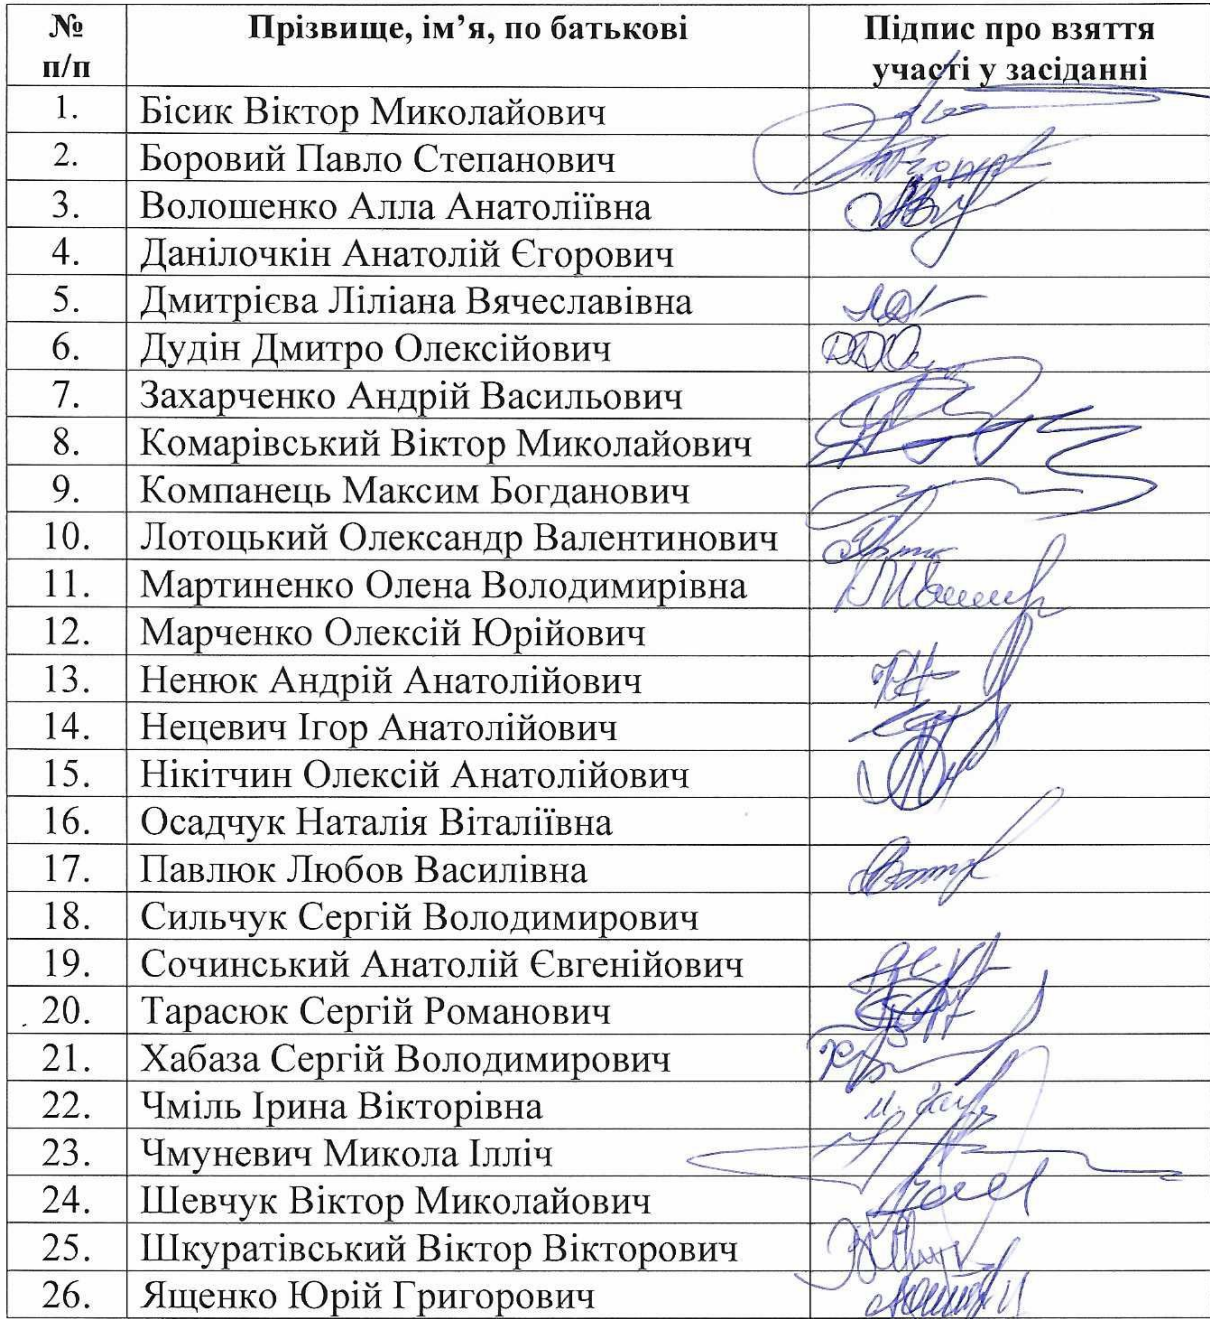 № п/п Прізвище, ім’я, по батькові Підпис про взяття участі у засіданні
1. Бісик Віктор Миколайович
2. Боровий Павло Степанович
3. Волошенко Алла Анатоліївна
4. Данілочкін Анатолій Єгорович
5. Дмитрієва Ліліана Вячеславівна
6. Дудін Дмитро Олексійович
7. Захарченко Андрій Васильович
8. Комарівський Віктор Миколайович
9. Компанець Максим Богданович
10. Лотоцький Олександр Валентинович
11. Мартиненко Олена Володимирівна
12. Марченко Олексій Юрійович
13. Ненюк Андрій Анатолійович
14. Нецевич Ігор Анатолійович
15. Нікітчин Олексій Анатолійович
16. Осадчук Наталія Віталіївна
17. Павлюк Любов Василівна
18. Сильчук Сергій Володимирович
19. Сочинський Анатолій Євгенійович
20. Тарасюк Сергій Романович
21. Хабаза Сергій Володимирович
22. Чміль Ірина Вікторівна
23. Чмуневич Микола Ілліч
24. Шевчук Віктор Миколайович
25. Шкуратівський Віктор Вікторович
26. Ященко Юрій Григорович